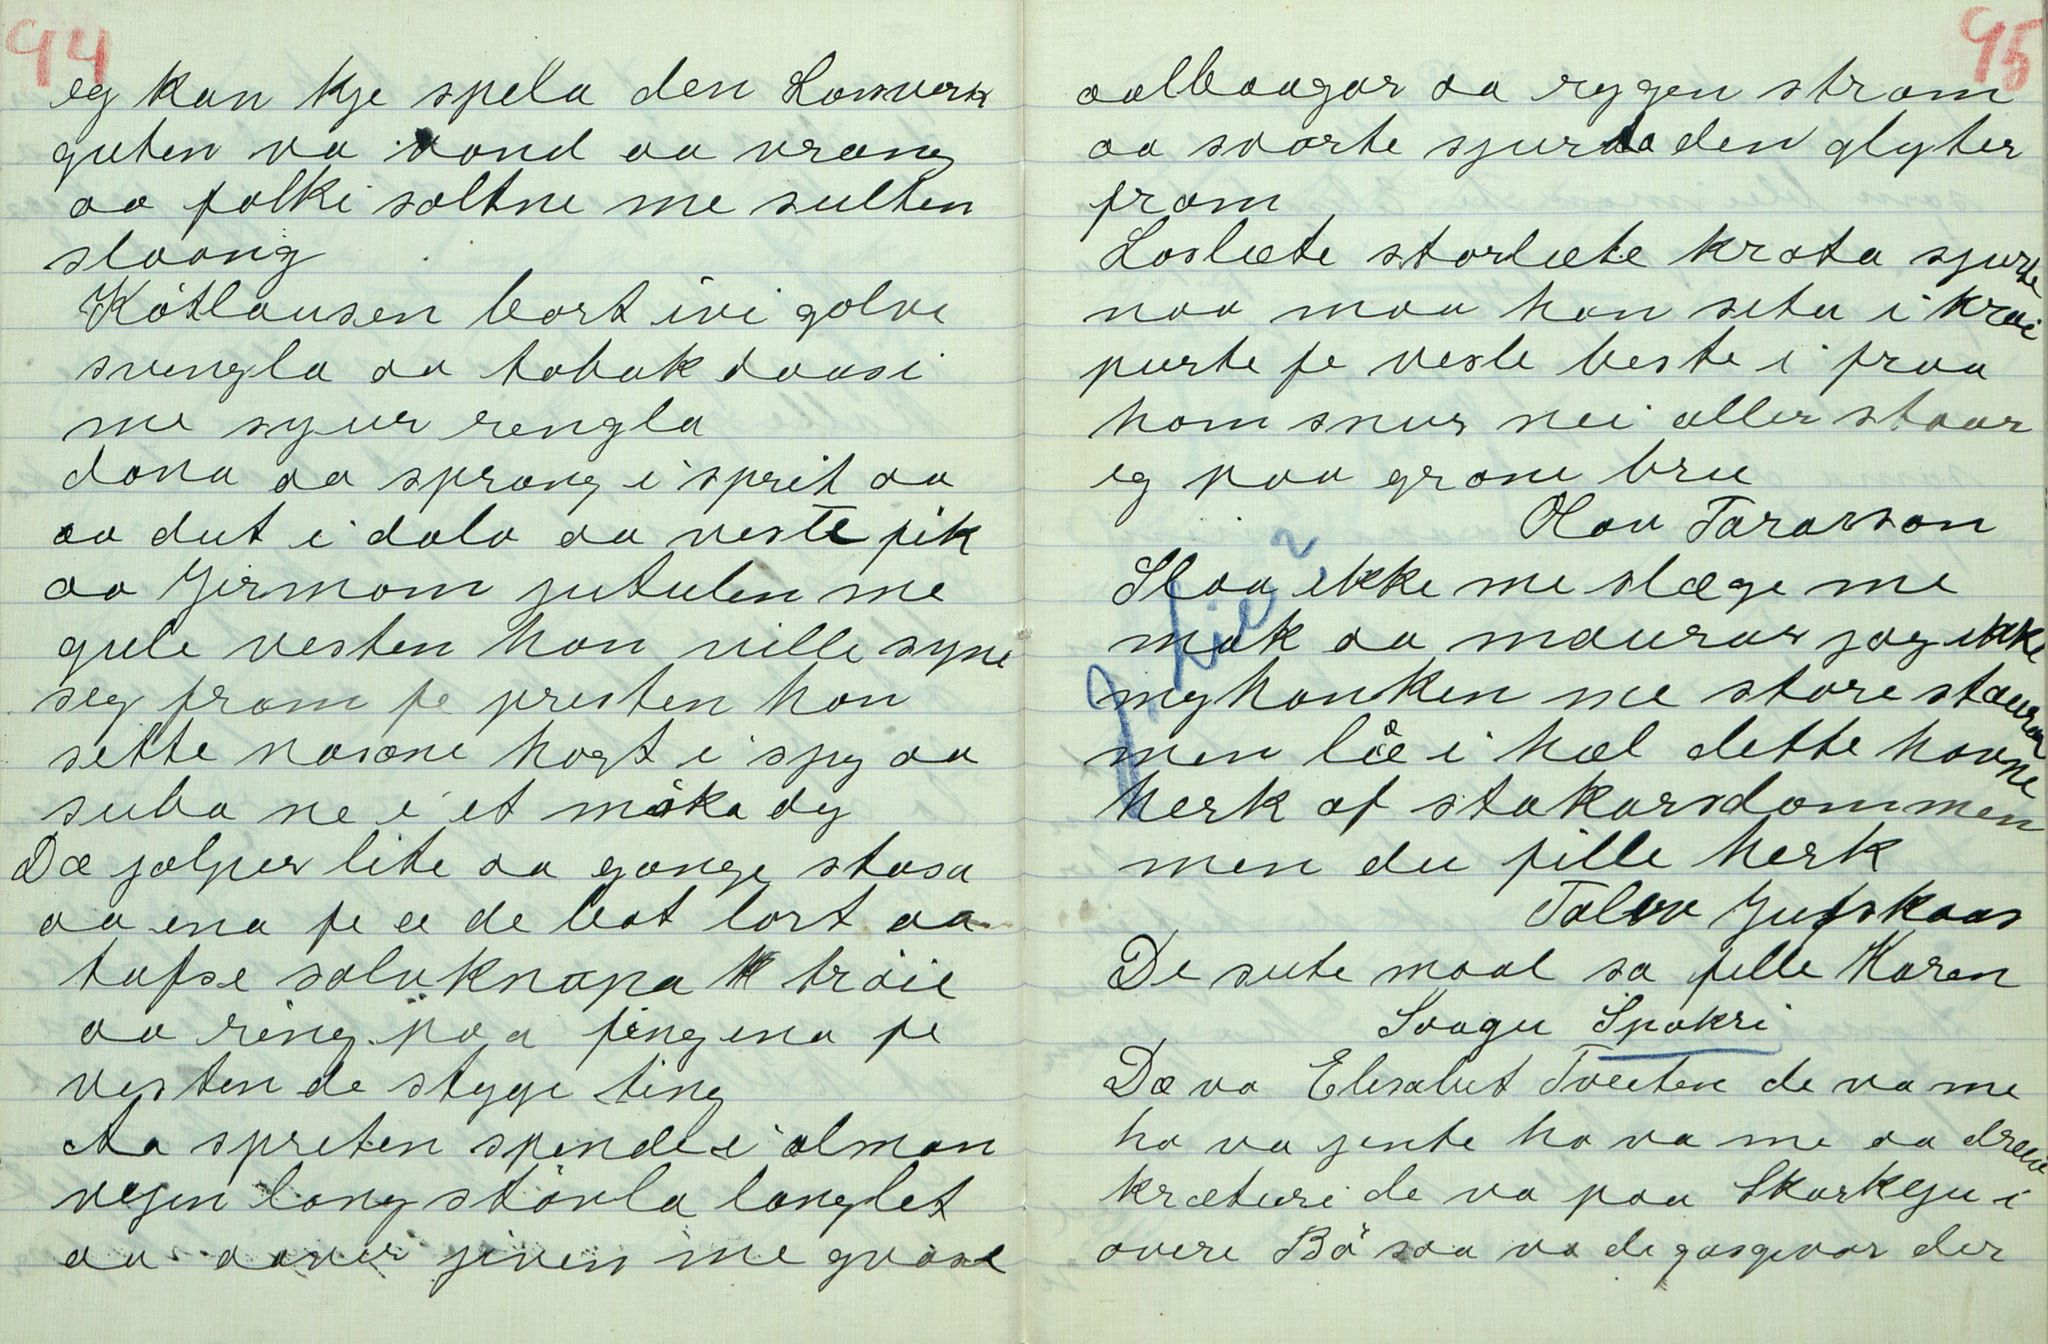 94
eg kan kje spela den Lonverks
guten va vond aa vrang
aa folki soltne me sulten
slaang
Kótlausen bort ivi golve
svengla aa tobak daasi
me syur rengla
dona aa sprang i sprit aa
aa dut i dala aa veste fik
aa Jermom jutulen me
gule vesten han ville syne
seg fram fe presten han
sette nasane høgt i spy aa
suba ne i et móka dy
Dæ jølper lite aa gange stasa
aa ena fe æ de bot lort aa
tufse sølvknapa tróie
aa ring paa fingena fe
vesten de stygge ting
Aa spreten spende i alman
vegen lang stóvla langlet
aa aaver given me grose
95
aalboagar aa ryggen stram
aa svarte sjurta den glyter
fram
Loslæte storlæte krota sjurte
naa maa han seta i kraai
purte fe vesle beste i fraa
hom snur nei aller staar
eg paa grøne bru
Olav Tararson
J. Lie?
Slaa ikke me slæge me
mak aa maurar jag ikke
myhanken me store stauren
men láe i hæl dette havne
herk af stakarsdommen
men du fille herk
Talov Jufskaas
De sute maal sa fille Karen
Soogu Spakri
Dæ va Elesabet Tveeten de va me
ho va jente ho va me aa dreiv
kræturi de va paa Skarkeju i
overe Bó saa va de gasgevar der